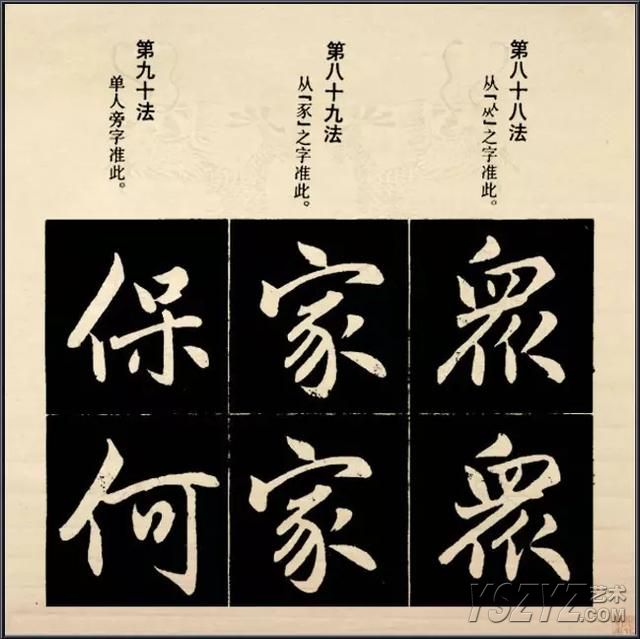 第八十八法
从「㐺」之字准此。
第八十九法
从「豕」之字准此。
第九十法
单人旁字准此。
眾
眾
家
家
保
何
YSZYZ艺术
.com